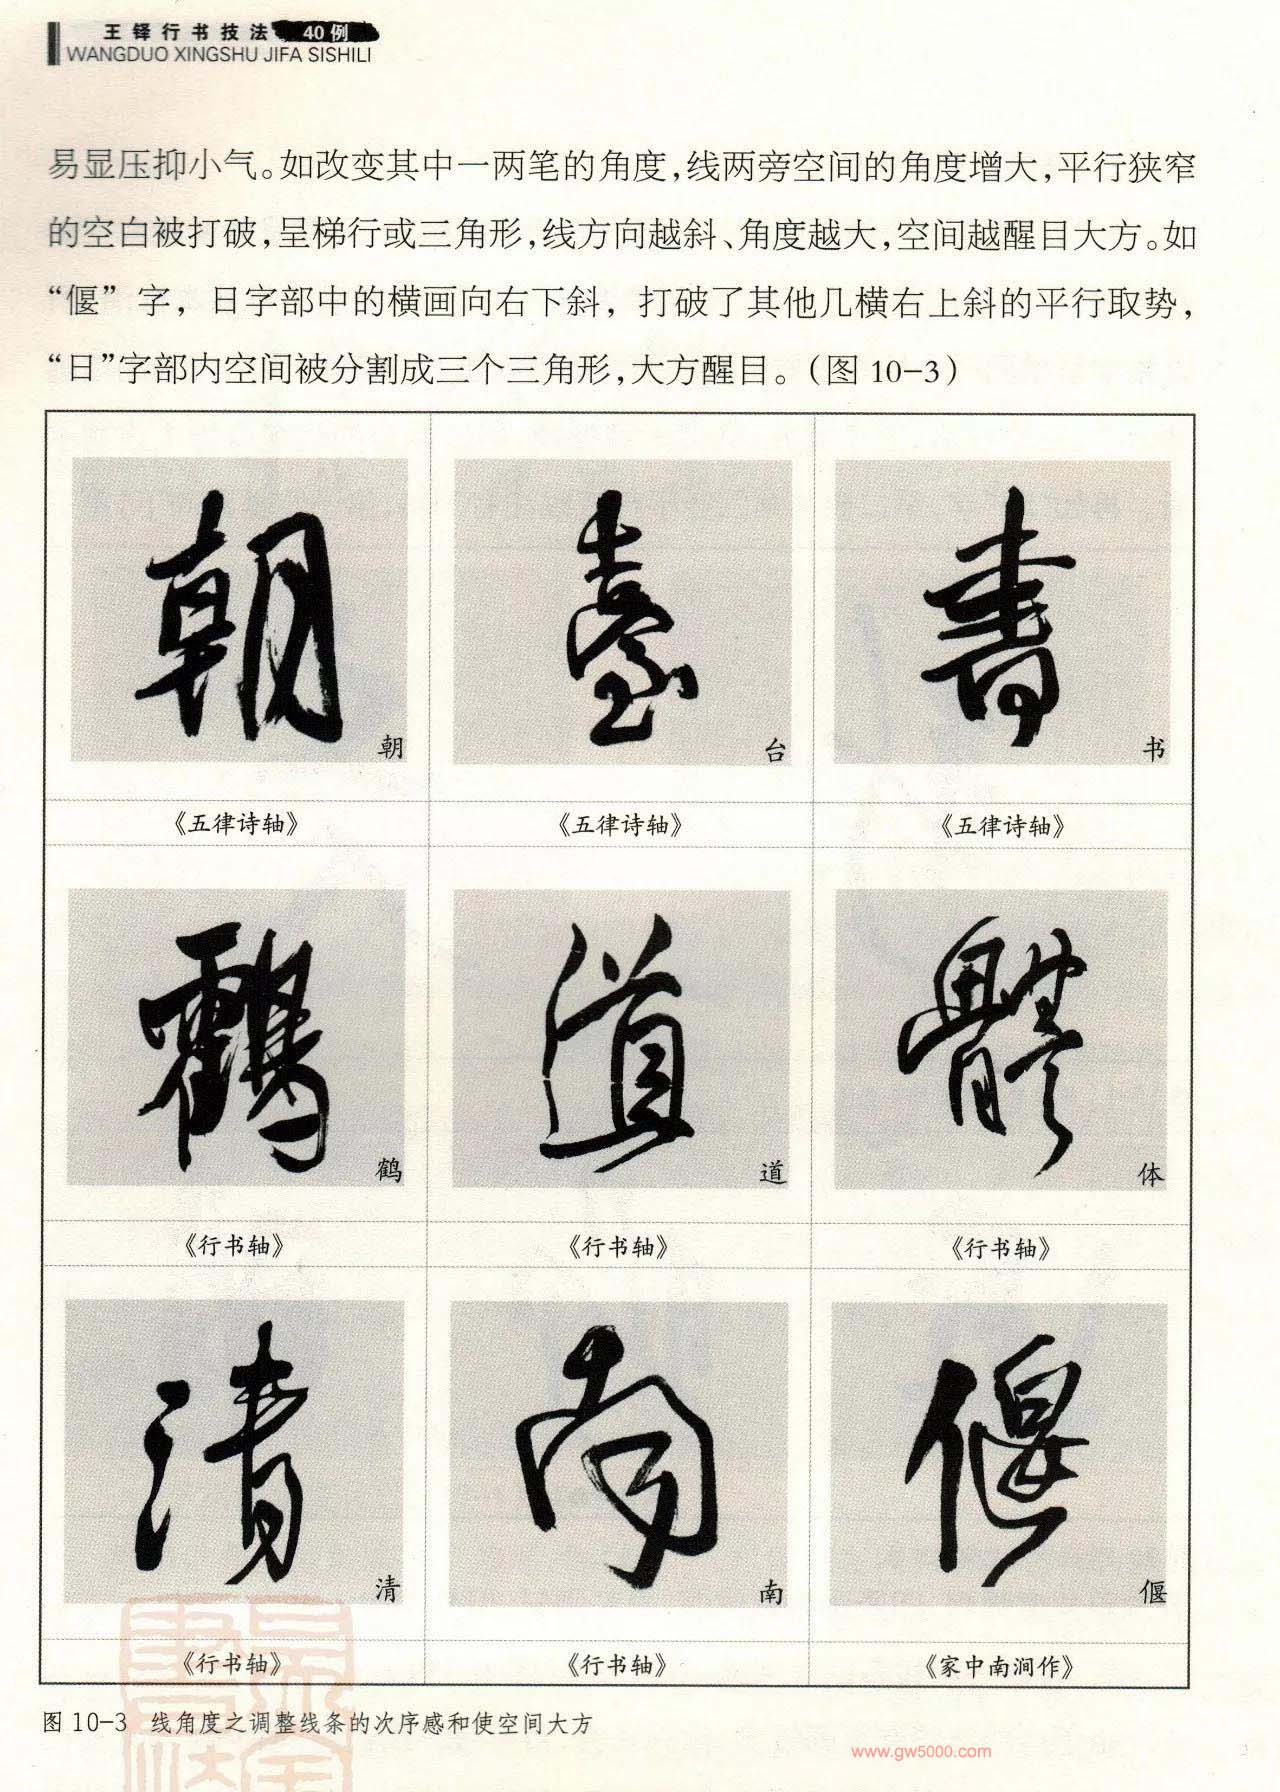 王铎行书技法 40例
WANGDUO XINGSHU JIFA SISHILI
易显压抑小气。如改变其中一两笔的角度，线两旁空间的角度增大，平行狭窄
的空白被打破，呈梯行或三角形，线方向越斜、角度越大，空间越醒目大方。如
“偃”字，日字部中的横画向右下斜，打破了其他几横右上斜的平行取势，
“日”字部内空间被分割成三个三角形，大方醒目。（图 10-3）
朝 臺 書
朝 台 书
《五律诗轴》 《五律诗轴》 《五律诗轴》
鶴 道 體
鹤 道 体
《行书轴》 《行书轴》 《行书轴》
清 南 偃
清 南 偃
《行书轴》 《行书轴》 《家中南涧作》
图 10-3 线角度之调整线条的次序感和使空间大方
www.gw5000.com